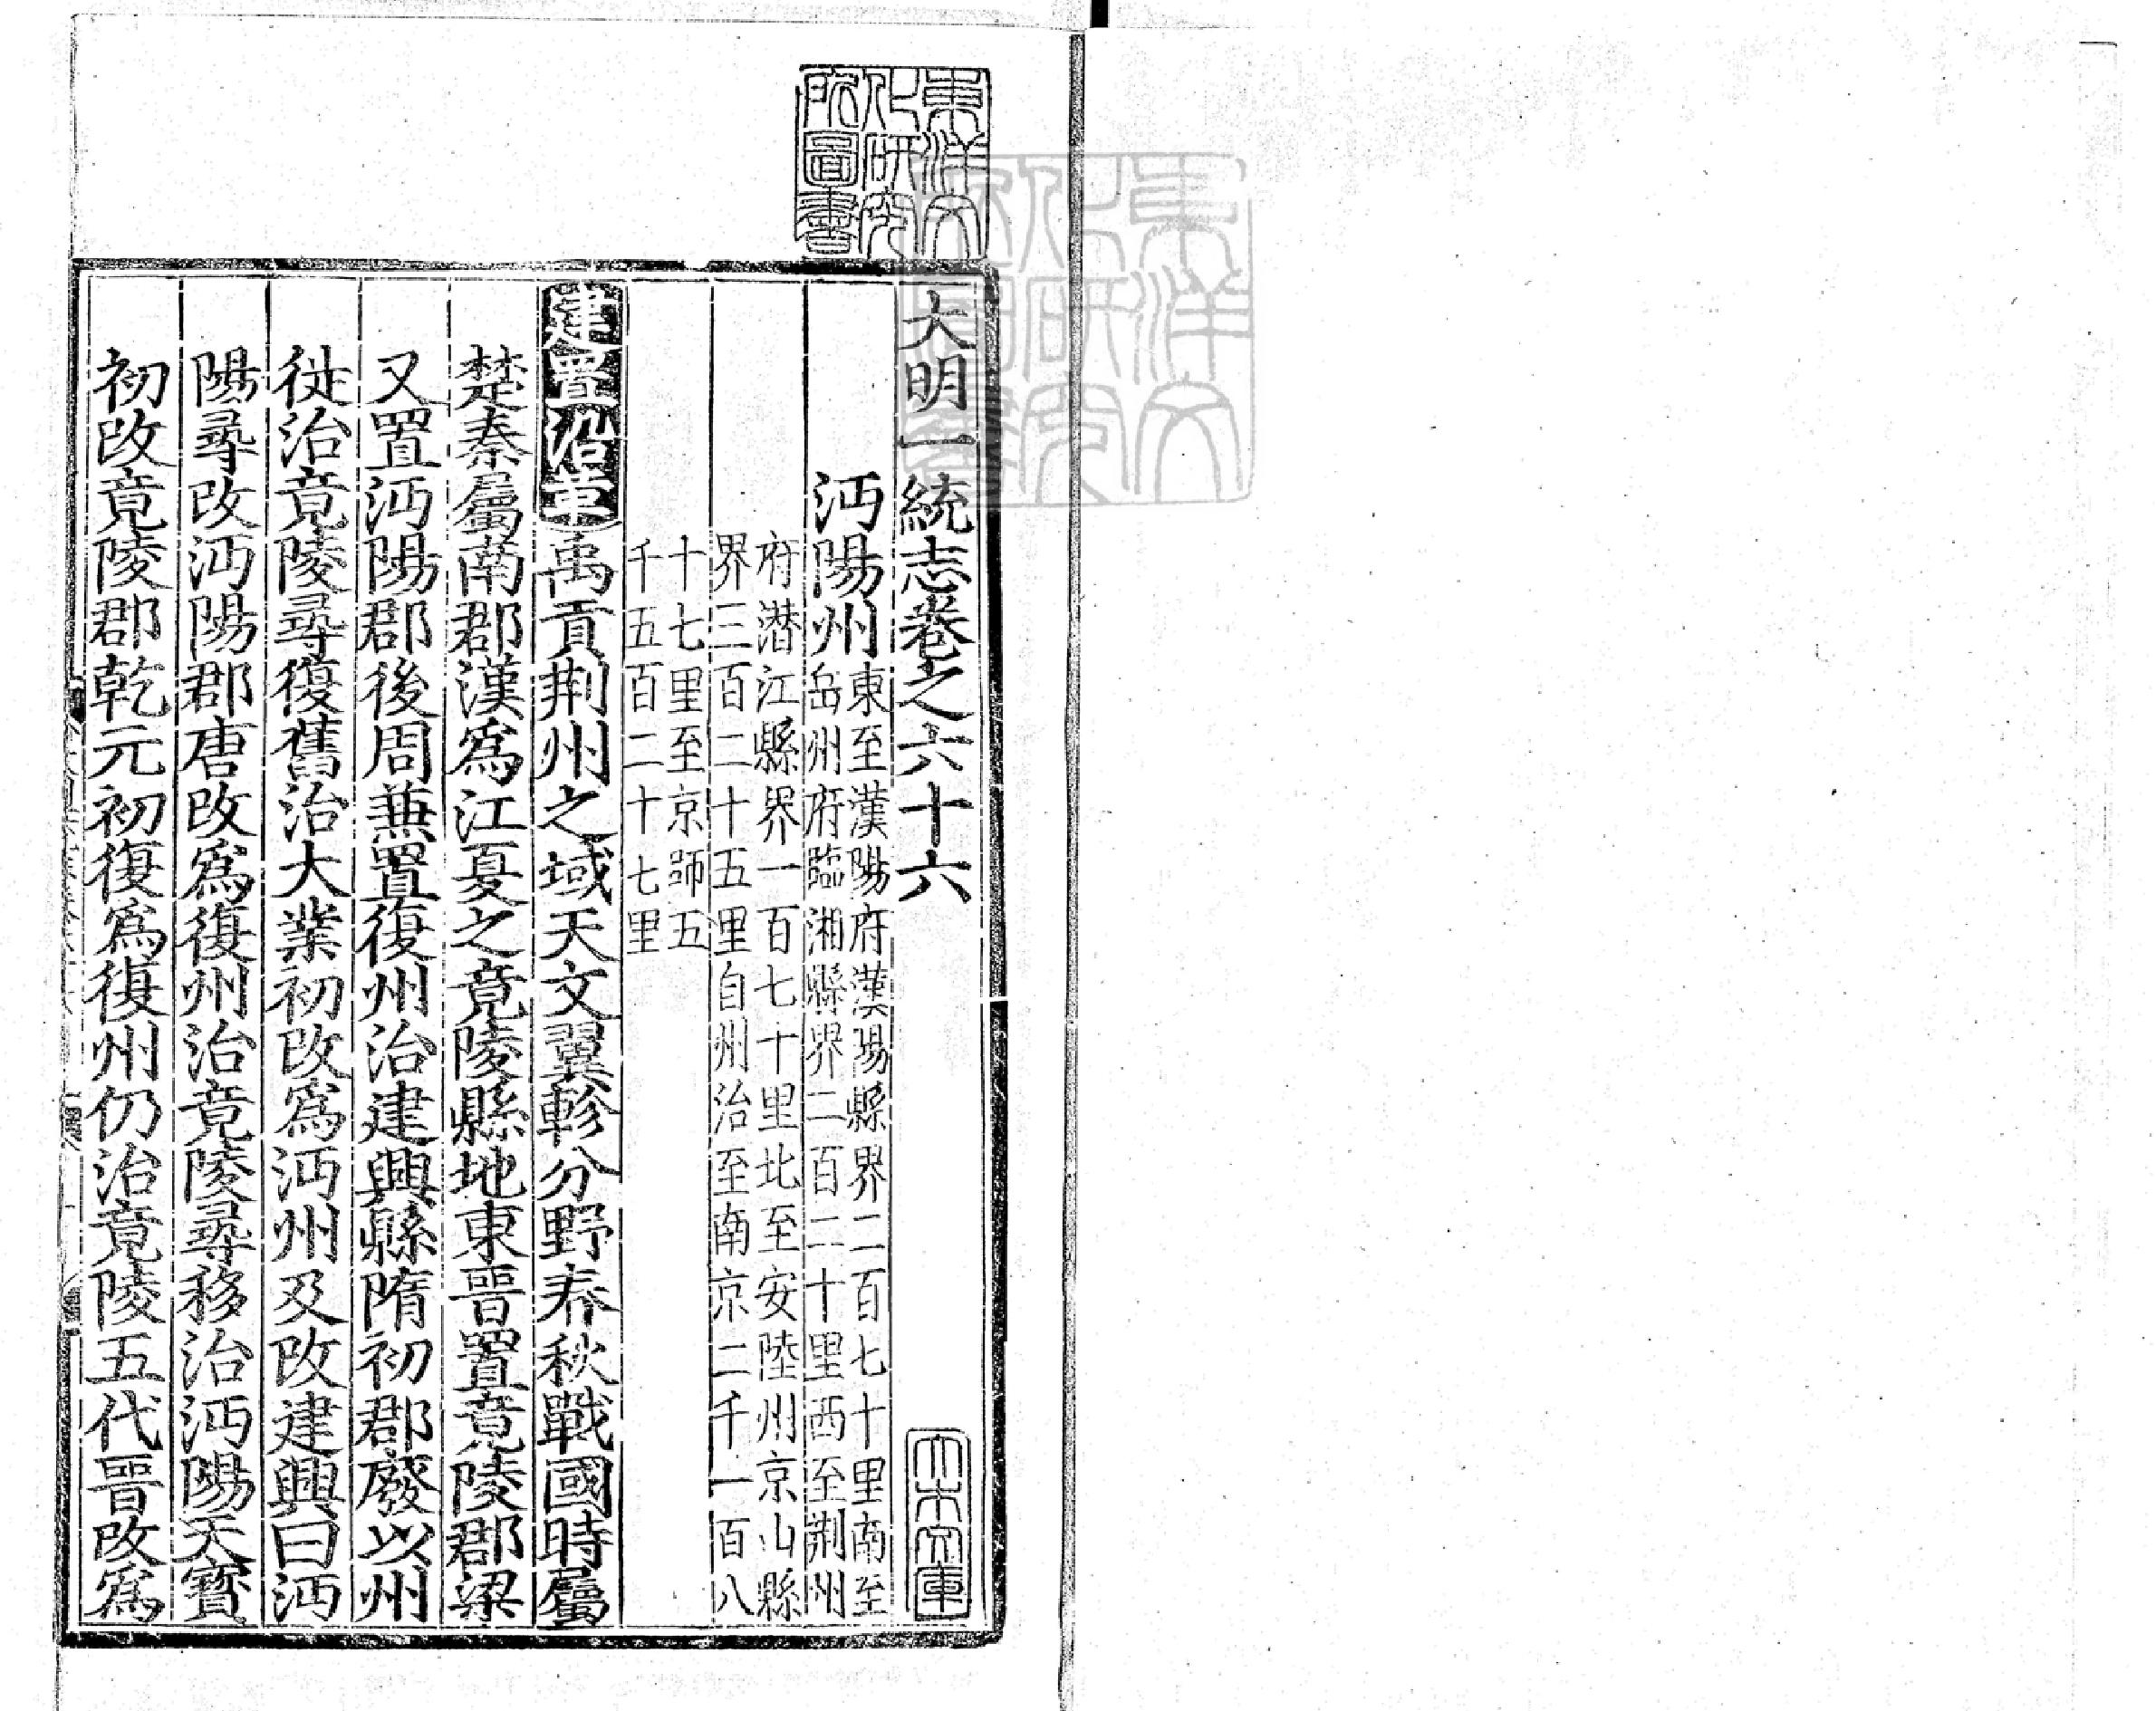 大明一統志卷之六十六
沔陽州東至漢陽府漢陽縣界二百七十里南至
岳州府臨湘縣界二百二十里西至荆州
府潜江縣界一百七十里北至安陸州京山縣
界三百二十五里自州治至南京二千一百八
十七里至京師五
千五百二十七里
建置沿革禹貢荆州之域天文翼軫分野春秋戰國時屬
楚秦屬南郡漢爲江夏之竟陵縣地東晉置竟陵郡梁
又置沔陽郡後周兼置復州治建興縣隋初郡廢以州
徙治竟陵尋復舊治大業初改爲沔州又改建興曰沔
陽尋改沔陽郡唐改爲復州治竟陵尋移治沔陽天寳
初改竟陵郡乾元初復爲復州仍治竟陵五代晉改爲
東洋文
化研究
所圖書
大木文庫